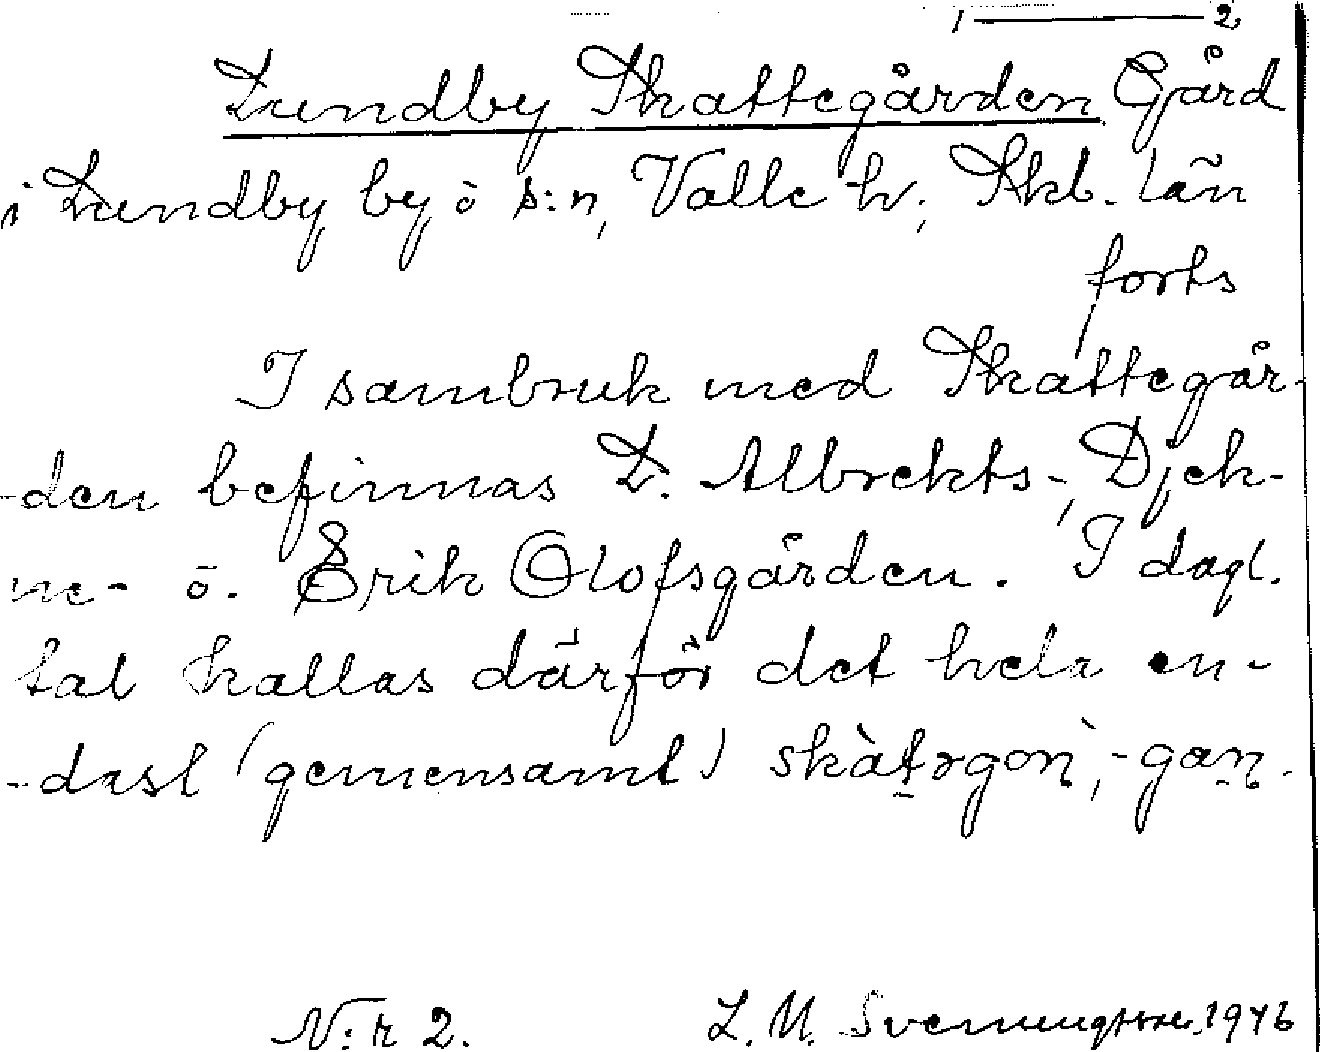 1 ——— 2
Lundby Skattegården Gård
i Lundby by o s:n, Valle h., Skb. län
forts
I sambruk med Skattegår-
-den befinnas L. Albrekts-, Djek-
ne- o. Erik Olofsgården. I dagl.
tal kallas därför det hela en-
-dast (gemensamt) skàtərgon̄, -gan.
N:r 2. L. M. Svenungsson 1946